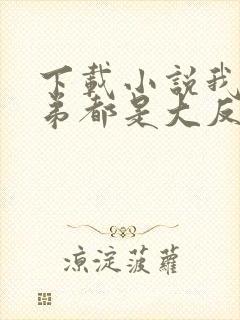 下載小說我
弟都是大反
涼淀菠蘿